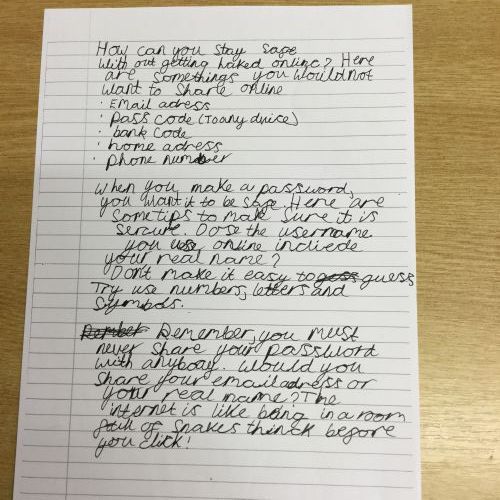 How can you stay safe
with out getting haked online? Here
are somethings you would not
want to share online
· Email adress
· pass code (To any dvice)
· bank code
· home adress
· phone number
when you make a password,
you want it to be safe. Here are
some tips to make sure it is
sercure. Dose the username
you use online incliede
your real name?
Dont make it easy to guess guess
Try use numbers, letters and
Symbols.
Remeber Remember, you must
never share your password
with anyboay. Would you
share your email adress or
your real name? The
internet is like being in a room
full of snakes thinck before
you click!